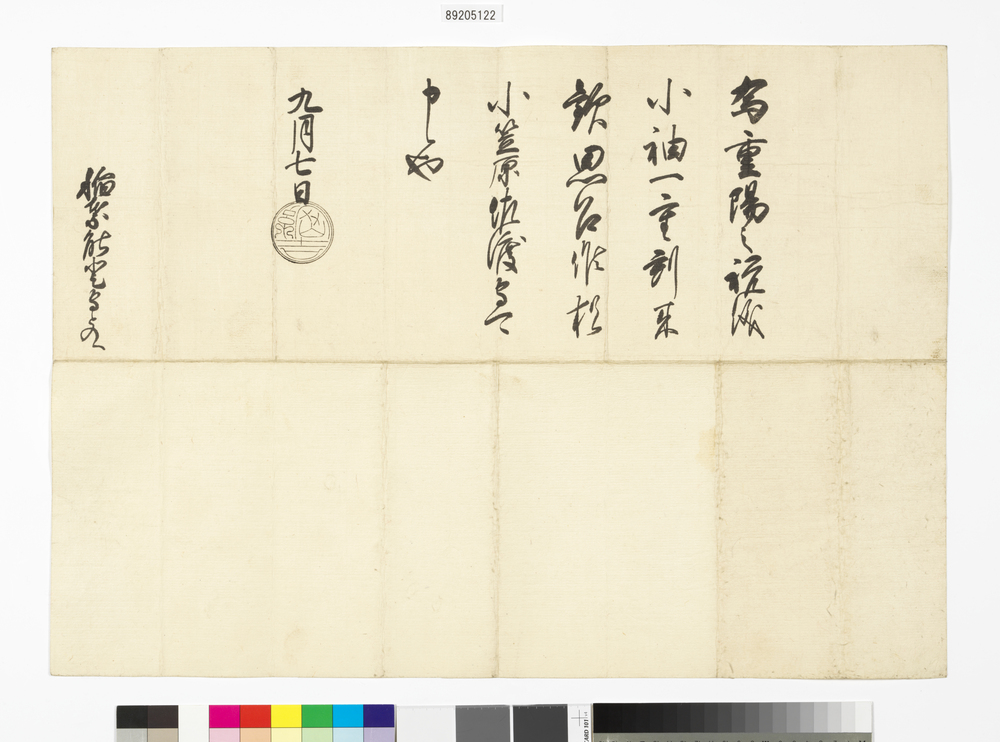 89205122
為重陽之祝儀
小袖一重到来
歓思召候猶
小笠原佐渡守可
申候也
九月七日
稲葉能登守とのへ